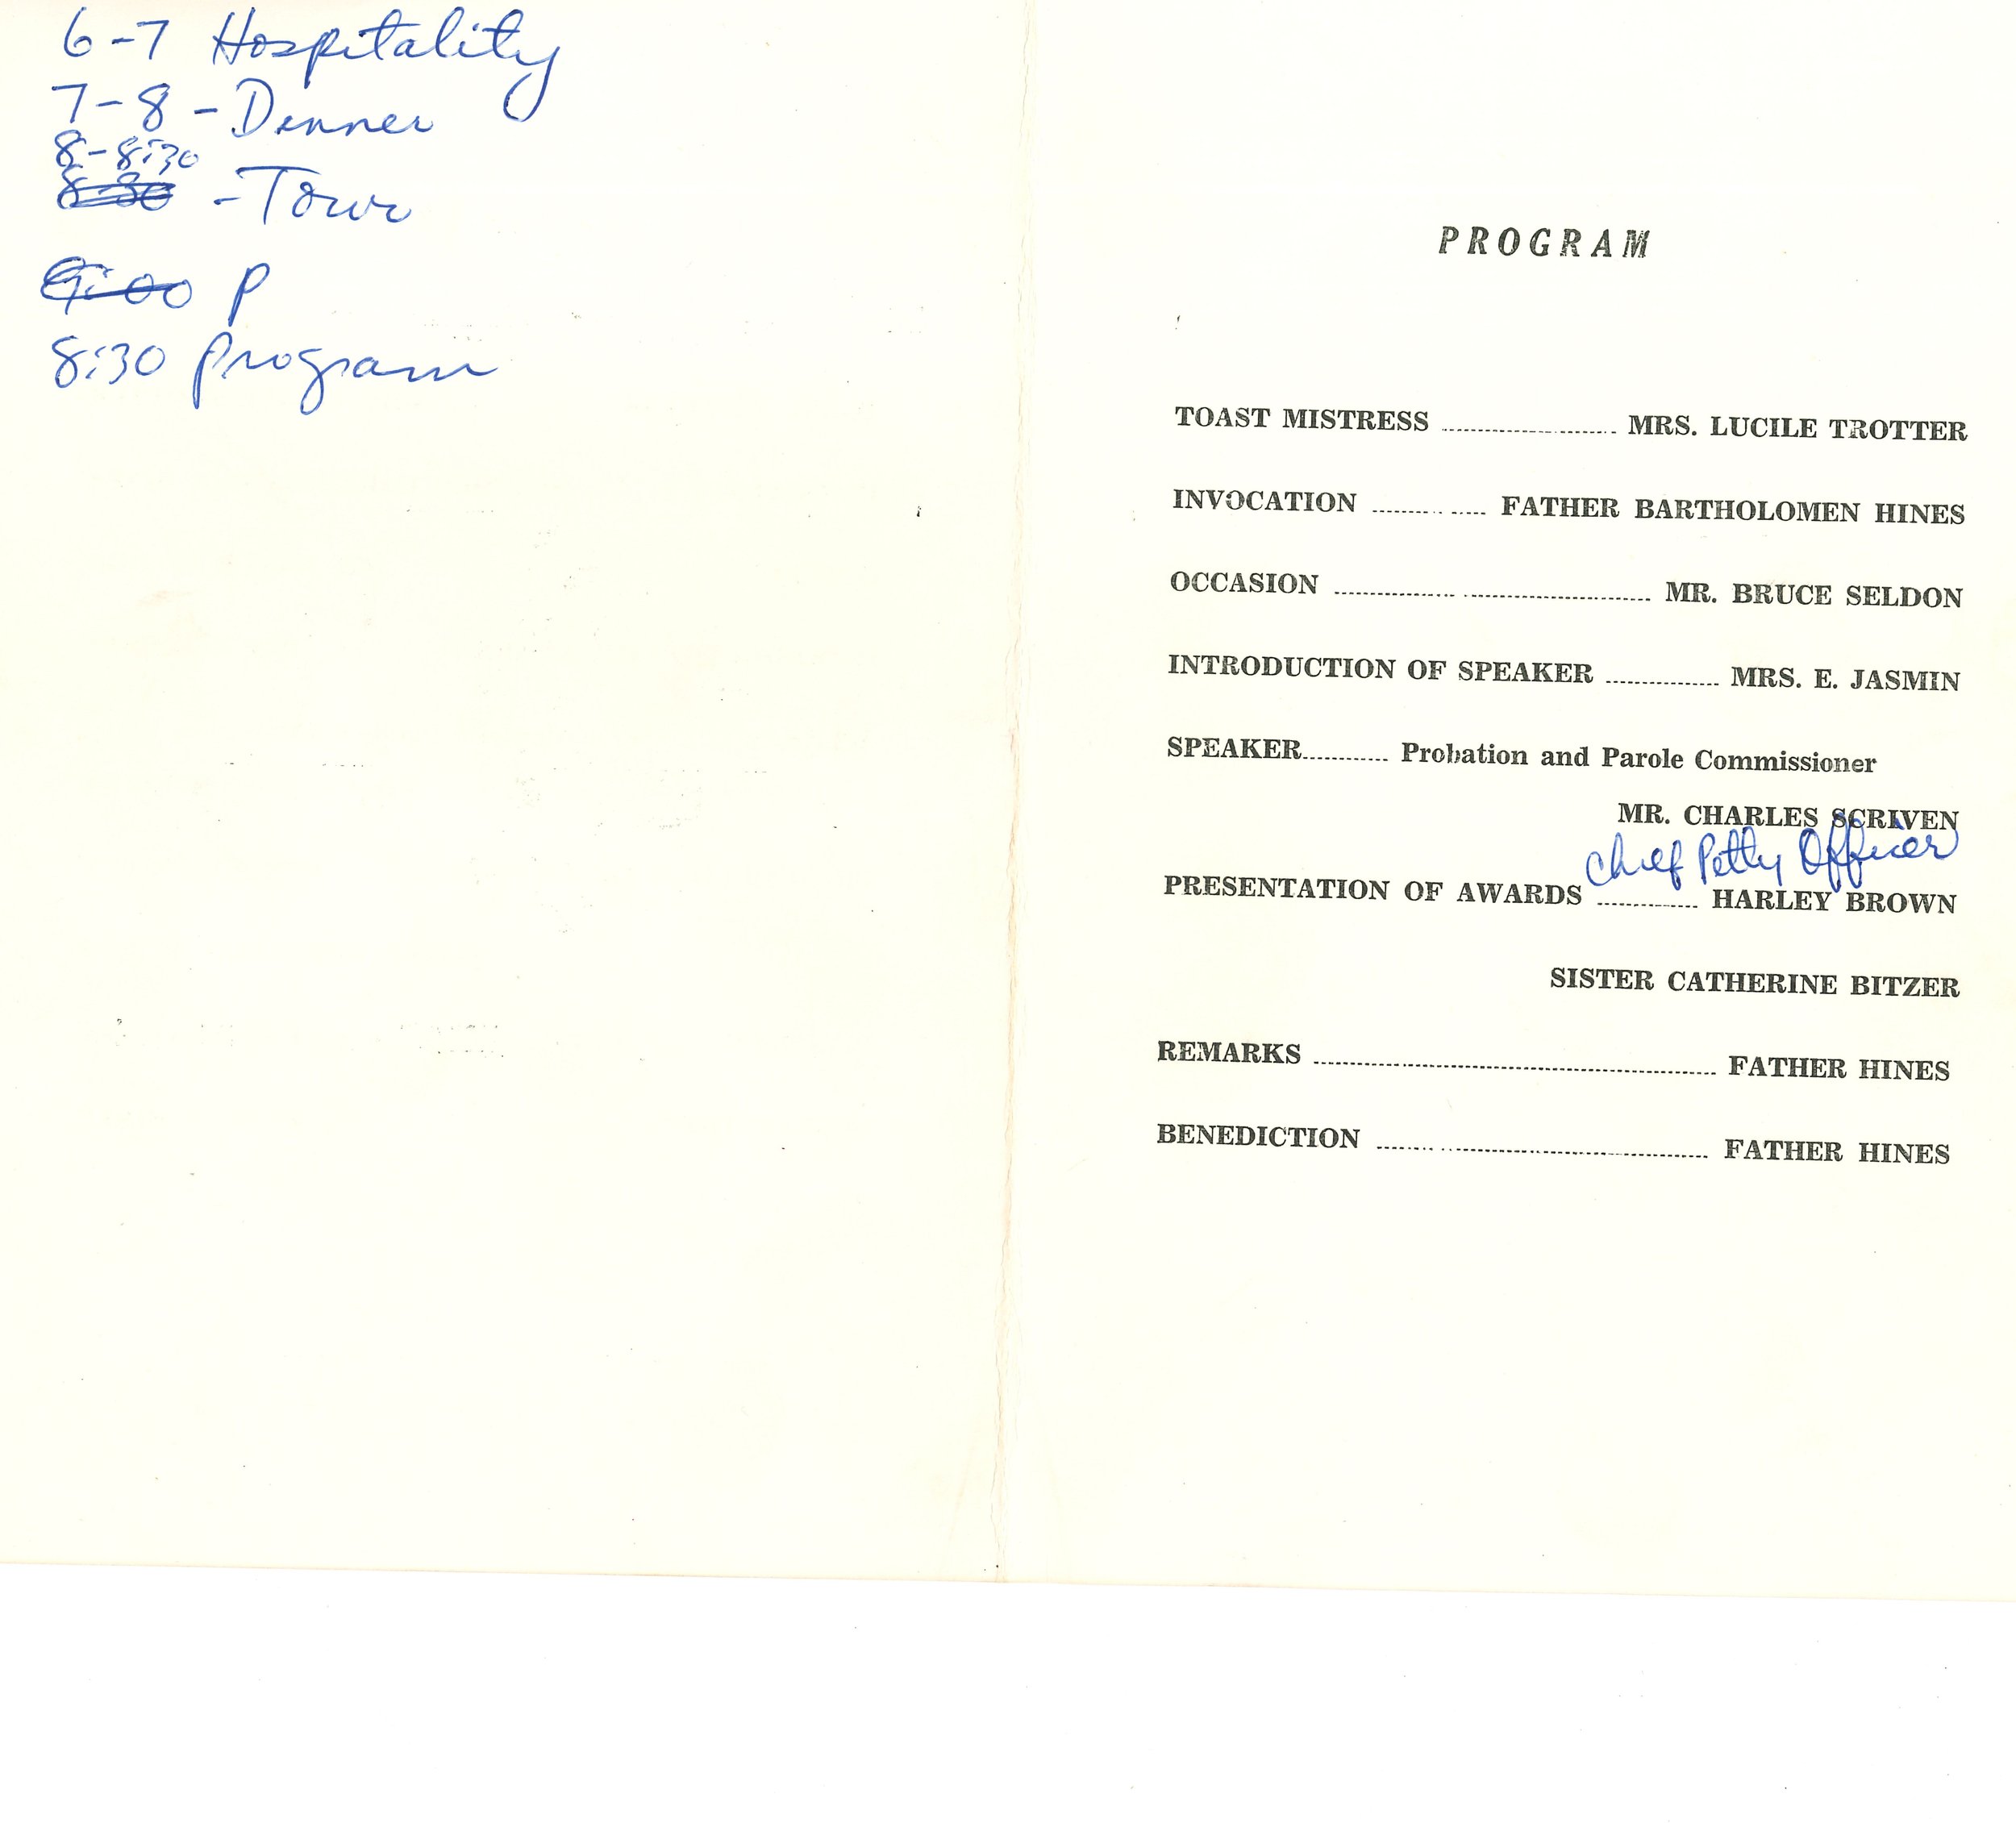 6-7 Hospitality
7-8 - Dinner
8-8:30
8-30 - Tour
9:00 P
8:30 Program
PROGRAM
TOAST MISTRESS .......... MRS. LUCILE TROTTER
INVOCATION .......... FATHER BARTHOLOMEN HINES
OCCASION .......... MR. BRUCE SELDON
INTRODUCTION OF SPEAKER .......... MRS. E. JASMIN
SPEAKER.......... Probation and Parole Commissioner
MR. CHARLES SCRIVEN
Chief Petty Officer
PRESENTATION OF AWARDS .......... HARLEY BROWN
SISTER CATHERINE BITZER
REMARKS .......... FATHER HINES
BENEDICTION .......... FATHER HINES